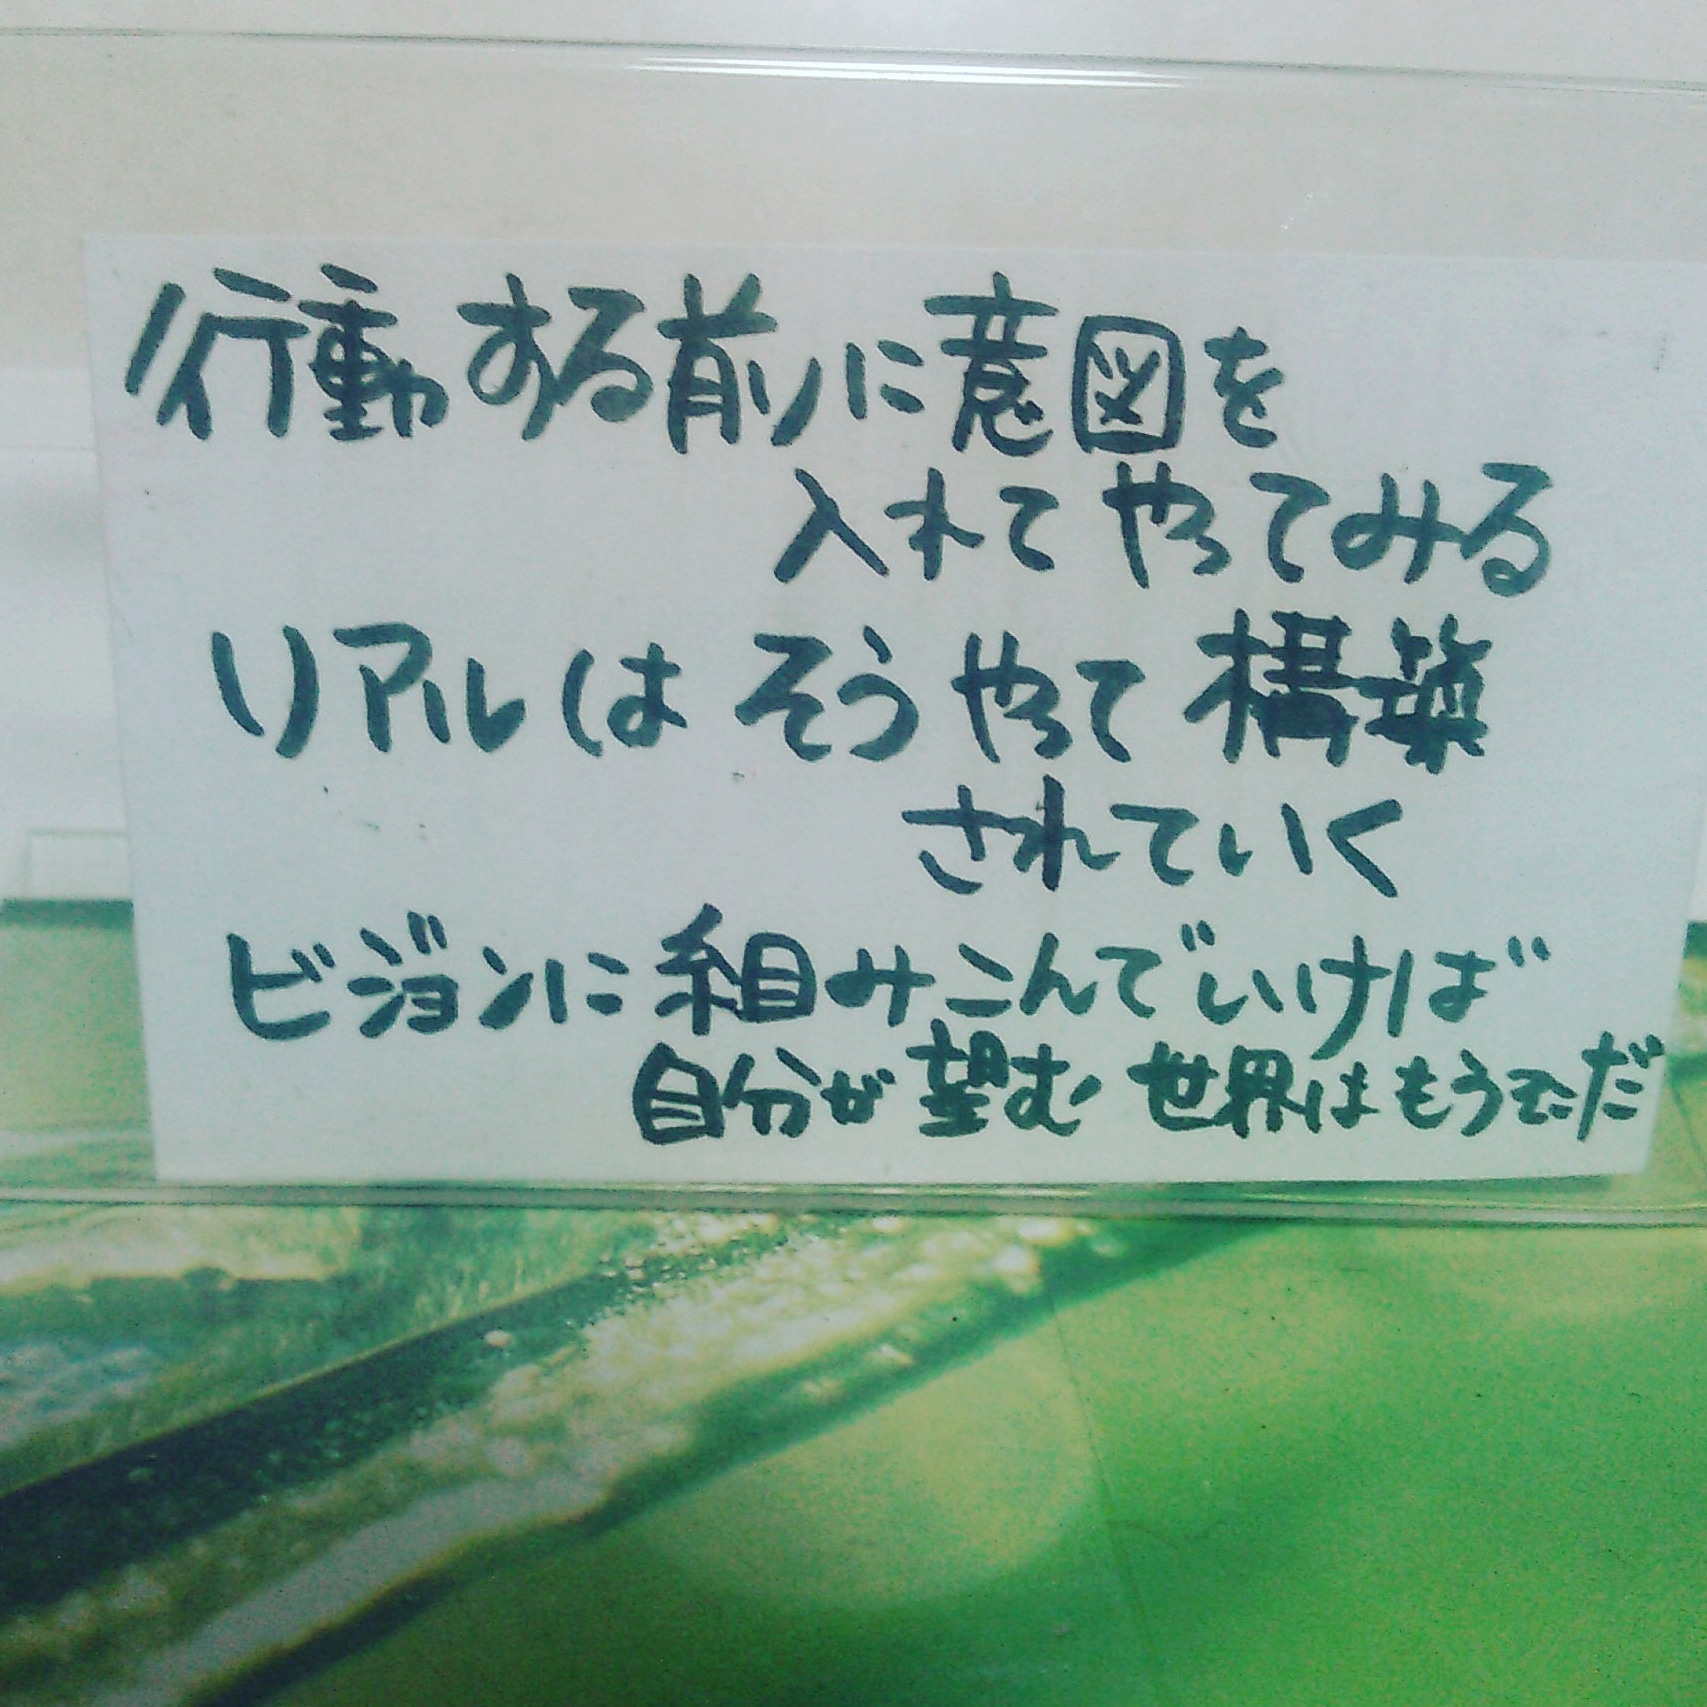 行動する前に意図を
入れてやってみる
リアルはそうやって構築
されていく
ビジョンに組みこんでいけば
自分が望む世界はもうそこだ